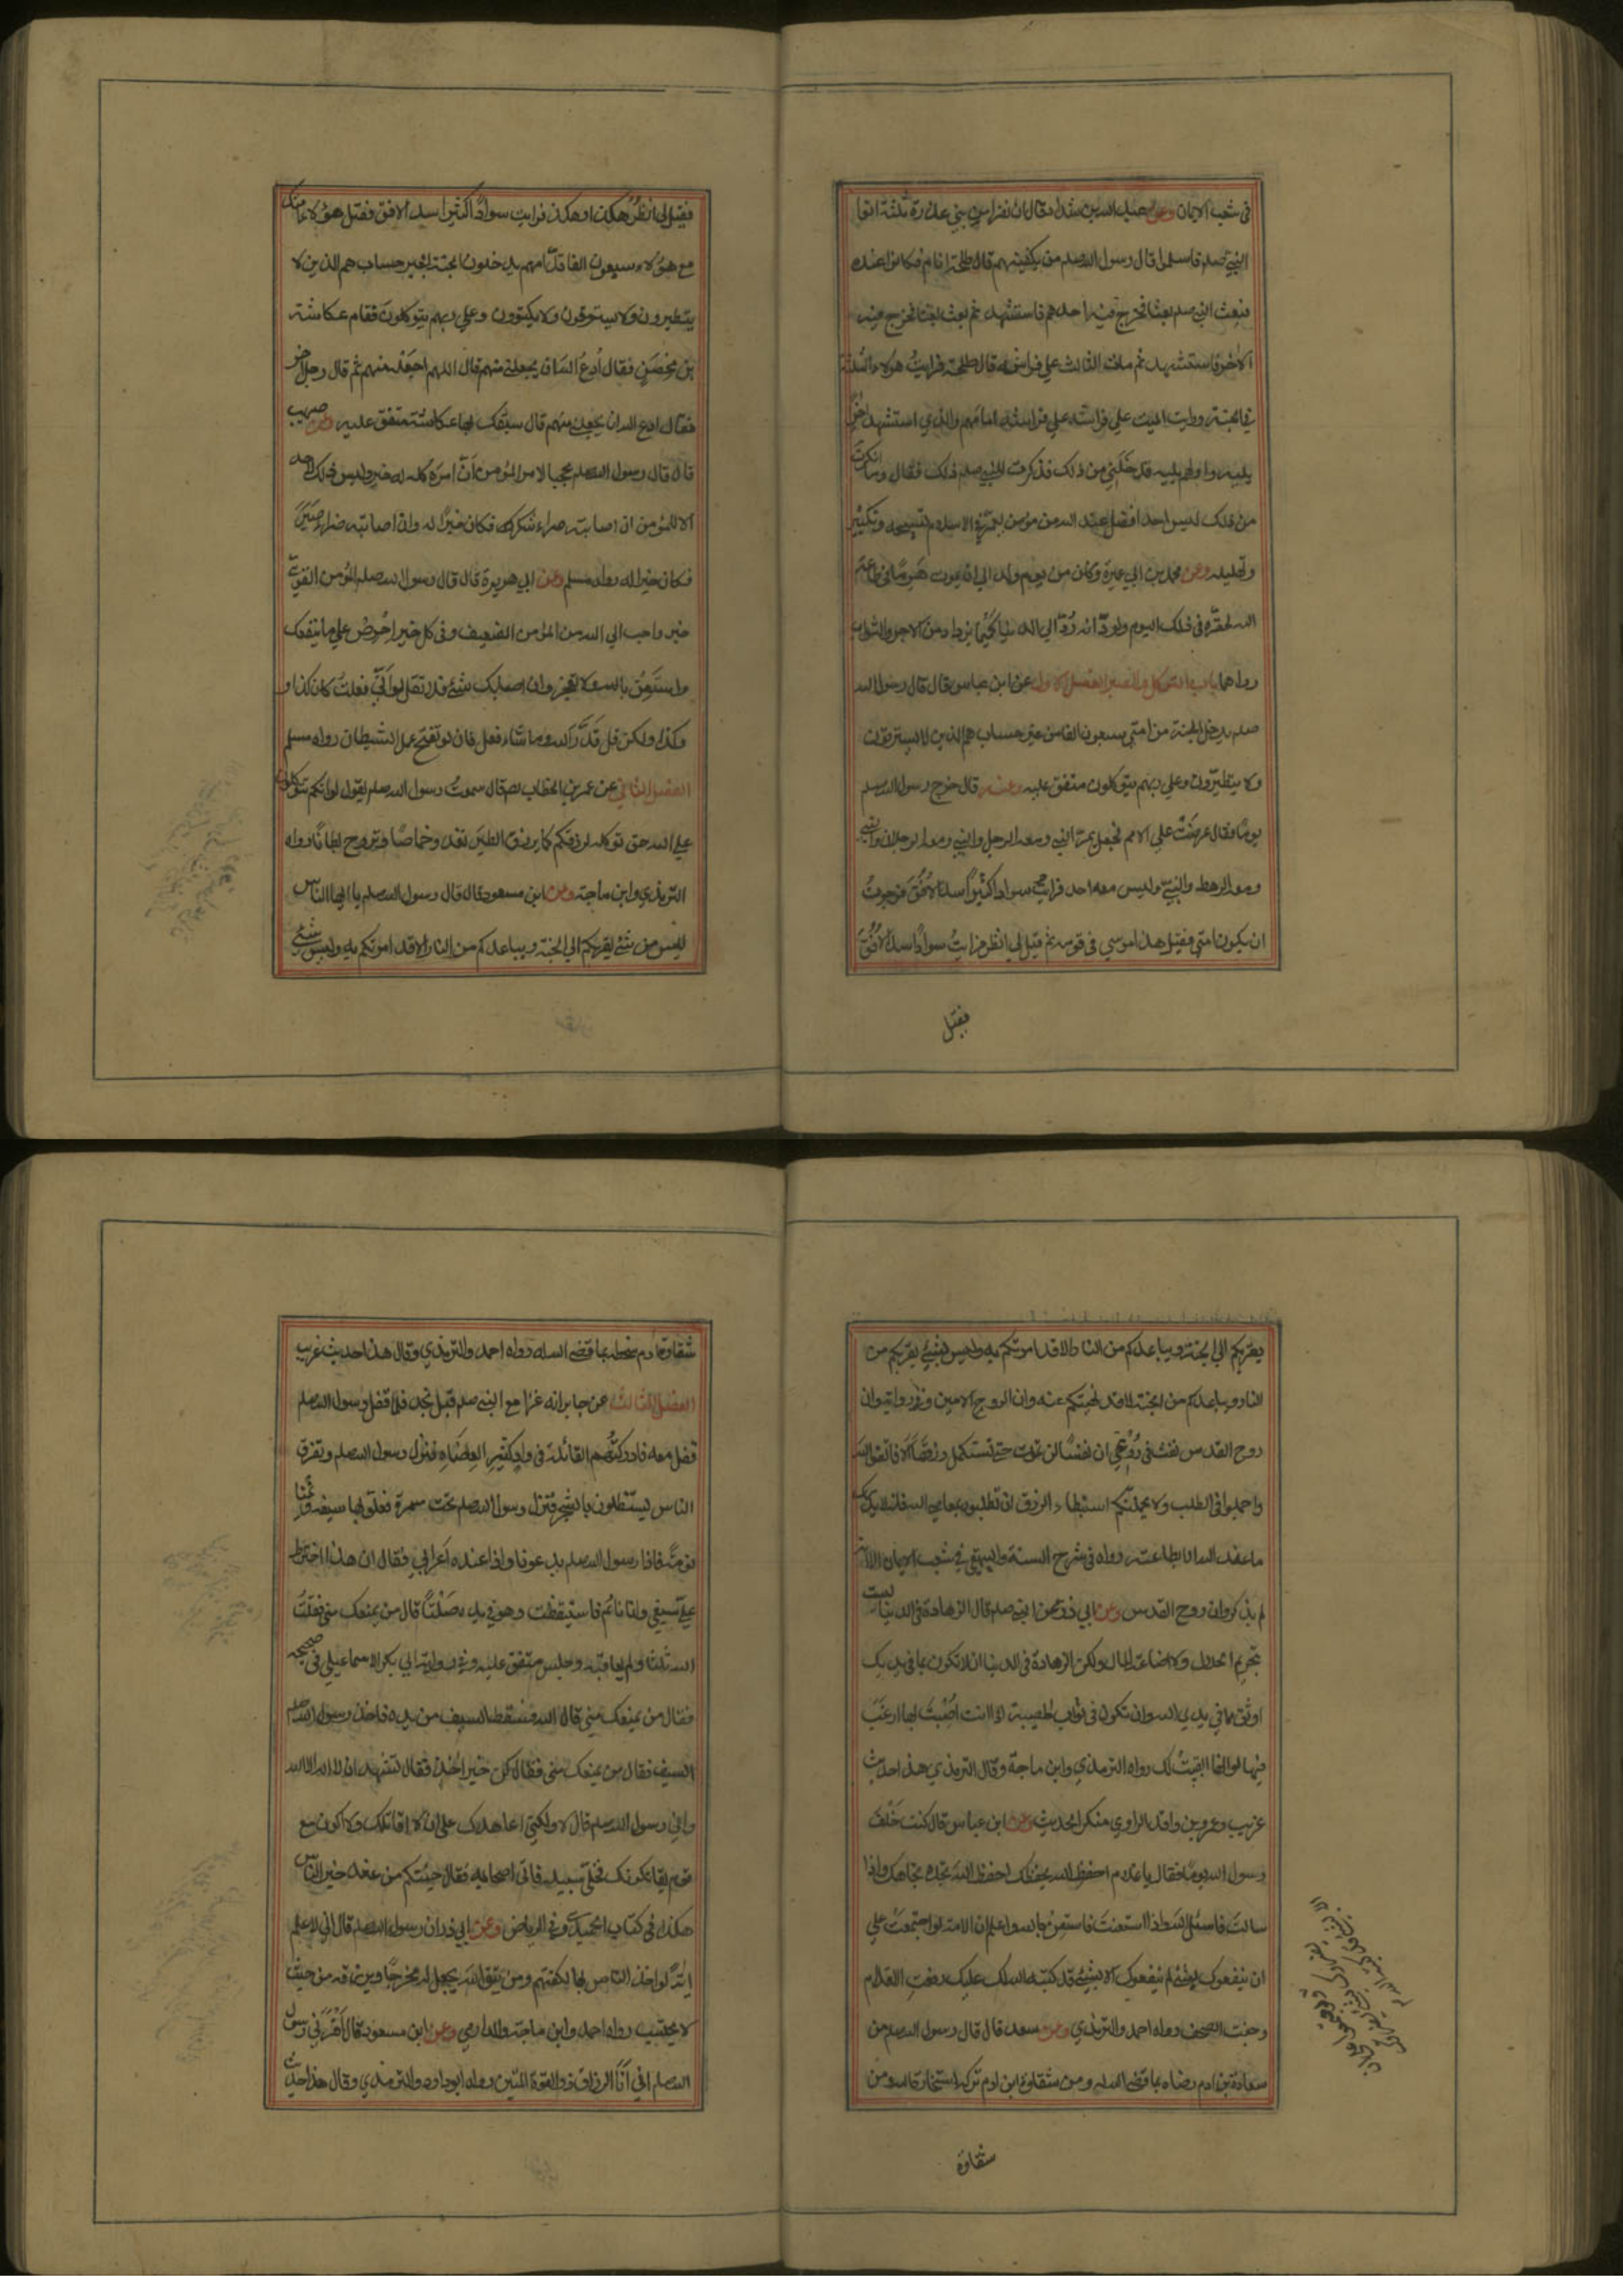 في شعب الايمان وعن عبد الله بن شداد قال ان نفرا من بني عذرة ثلثة اتوا
النبي صلعم فاسلموا قال رسول الله صلعم من يكفينيهم قال طلحة انا فكانوا عنده
فبعث النبي صلعم بعثا فخرج فيه احدهم فاستشهد ثم بعث بعثا فخرج فيه
الآخر فاستشهد ثم مات الثالث على فراشه قال طلحة فرايت هولاء الثلثة
في الجنة ورايت الميت على فراشه امامهم والذي استشهد اخرا
يليه واولهم يليه فدخلني من ذلك فذكرت للنبي صلعم ذلك فقال وما انكرت
من ذلك ليس احد افضل عند الله من مؤمن يعمر في الاسلام لتسبيحه وتكبيره
وتهليله وعن محمد بن ابي عميرة وكان من يوم ولد الى ان يموت هرما في طاعة
الله لحقره في ذلك اليوم ولود انه رد الى الدنيا كيما يزداد من الاجر والثواب
رواهما باب التوكل والصبر الفصل الاول عن ابن عباس قال قال رسول الله
صلعم يدخل الجنة من امتي سبعون الفا من غير حساب هم الذين لا يسترقون
ولا يتطيرون وعلى ربهم يتوكلون متفق عليه وعنه قال خرج رسول الله صلعم
يوما فقال عرضت علي الامم فجعل يمر النبي ومعه الرجل والنبي ومعه الرجلان والنبي
ومعه الرهط والنبي وليس معه احد فرايت سوادا كثيرا سد الافق فرجوت
ان يكون امتي فقيل هذا موسى في قومه ثم قيل لي انظر فرايت سوادا سد الافق
فقيل
فقيل لي انظر هكذا وهكذا فرايت سوادا كثيرا سد الافق فقيل هؤلاء امتك
مع هؤلاء سبعون الفا قدامهم يدخلون الجنة بغير حساب هم الذين لا
يتطيرون ولا يسترقون ولا يكتوون وعلى ربهم يتوكلون فقام عكاشة
بن محصن فقال ادع الله ان يجعلني منهم قال اللهم اجعله منهم ثم قال رجل آخر
فقال ادع الله ان يجعلني منهم قال سبقك بها عكاشة متفق عليه وعن صهيب
قال قال رسول الله صلعم عجبا لامر المؤمن ان امره كله له خير وليس ذلك لاحد
الا للمؤمن ان اصابته سراء شكر فكان خيرا له وان اصابته ضراء صبر
فكان خيرا له رواه مسلم وعن ابي هريرة قال قال رسول الله صلعم المؤمن القوي
خير واحب الى الله من المؤمن الضعيف وفي كل خير احرص على ما ينفعك
واستعن بالله ولا تعجز وان اصابك شيء فلا تقل لو اني فعلت كان كذا و
وكذا ولكن قل قدر الله وما شاء فعل فان لو تفتح عمل الشيطان رواه مسلم
الفصل الثاني عن عمر بن الخطاب قال سمعت رسول الله صلعم يقول لو انكم تتوكلون
على الله حق توكله لرزقكم كما يرزق الطير تغدو خماصا وتروح بطانا رواه
الترمذي وابن ماجة وعن ابن مسعود قال قال رسول الله صلعم يا ايها الناس
ليس من شيء يقربكم الى الجنة ويباعدكم من النار الا قد امرتكم به وليس شيء
يقربكم الى الجنة ويباعدكم من النار الا قد امرتكم به وليس شيء يقربكم من
النار ويباعدكم من الجنة الا قد نهيتكم عنه وان الروح الامين وفي رواية وان
روح القدس نفث في روعي ان نفسا لن تموت حتى تستكمل رزقها الا فاتقوا الله
واجملوا في الطلب ولا يحملنكم استبطاء الرزق ان تطلبوه بمعاصي الله فانه لا يدرك
ما عند الله الا بطاعته رواه في شرح السنة والبيهقي في شعب الايمان الا انه
لم يذكر وان روح القدس وعن ابي ذر عن النبي صلعم قال الزهادة في الدنيا ليست
بتحريم الحلال ولا اضاعة المال ولكن الزهادة في الدنيا ان لا تكون بما في يديك
اوثق بما في يدي الله وان تكون في ثواب المصيبة اذا انت اصبت بها ارغب
فيها لو انها ابقيت لك رواه الترمذي وابن ماجة وقال الترمذي هذا حديث
غريب وعمرو بن واقد الراوي منكر الحديث وعن ابن عباس قال كنت خلف
رسول الله يوما فقال يا غلام احفظ الله يحفظك احفظ الله تجده تجاهك واذا
سالت فاسئل الله واذا استعنت فاستعن بالله واعلم ان الامة لو اجتمعت على
ان ينفعوك بشيء لم ينفعوك الا بشيء قد كتبه الله لك عليك رفعت الاقلام
وجفت الصحف رواه احمد والترمذي وعن سعد قال قال رسول الله صلعم من
سعادة بن ادم رضاه بما قضى الله له ومن شقاوة ابن ادم تركه استخارة الله ومن
شقاوة
شقاوة بن ادم سخطه بما قضى الله له رواه احمد والترمذي وقال هذا حديث غريب
الفصل الثالث عن جابر انه غزا مع النبي صلعم قبل نجد فلما قفل رسول الله صلعم
قفل معه فادركتهم القائلة في واد كثير العضاه فنزل رسول الله صلعم وتفرق
الناس يستظلون بالشجر فنزل رسول الله صلعم تحت سمرة فعلق بها سيفه ونمنا
نومة فاذا رسول الله صلعم يدعونا واذا عنده اعرابي فقال ان هذا اخترط
علي سيفي وانا نائم فاستيقظت وهو في يده صلتا قال من يمنعك مني فقلت
الله ثلثا ولم يعاقبه وجلس متفق عليه وفي رواية ابي بكر الاسماعيلي في صحيحه
فقال من يمنعك مني قال الله فسقط السيف من يده فاخذ رسول الله صلعم
السيف فقال من يمنعك مني فقال كن خير آخذ فقال تشهد ان لا اله الا الله
واني رسول الله صلعم قال لا ولكني اعاهدك على ان لا اقاتلك ولا اكون مع
قوم يقاتلونك فخلى سبيله فاتى اصحابه فقال جئتكم من عند خير الناس
هكذا في كتاب الحميدي وفي الرياض وعن ابي ذر ان رسول الله صلعم قال اني لاعلم
آية لو اخذ الناس بها لكفتهم ومن يتق الله يجعل له مخرجا ويرزقه من حيث
لا يحتسب رواه احمد وابن ماجة والدارمي وعن ابن مسعود قال اقراني رسول
الله صلعم اني انا الرزاق ذو القوة المتين رواه ابو داود والترمذي وقال هذا حديث